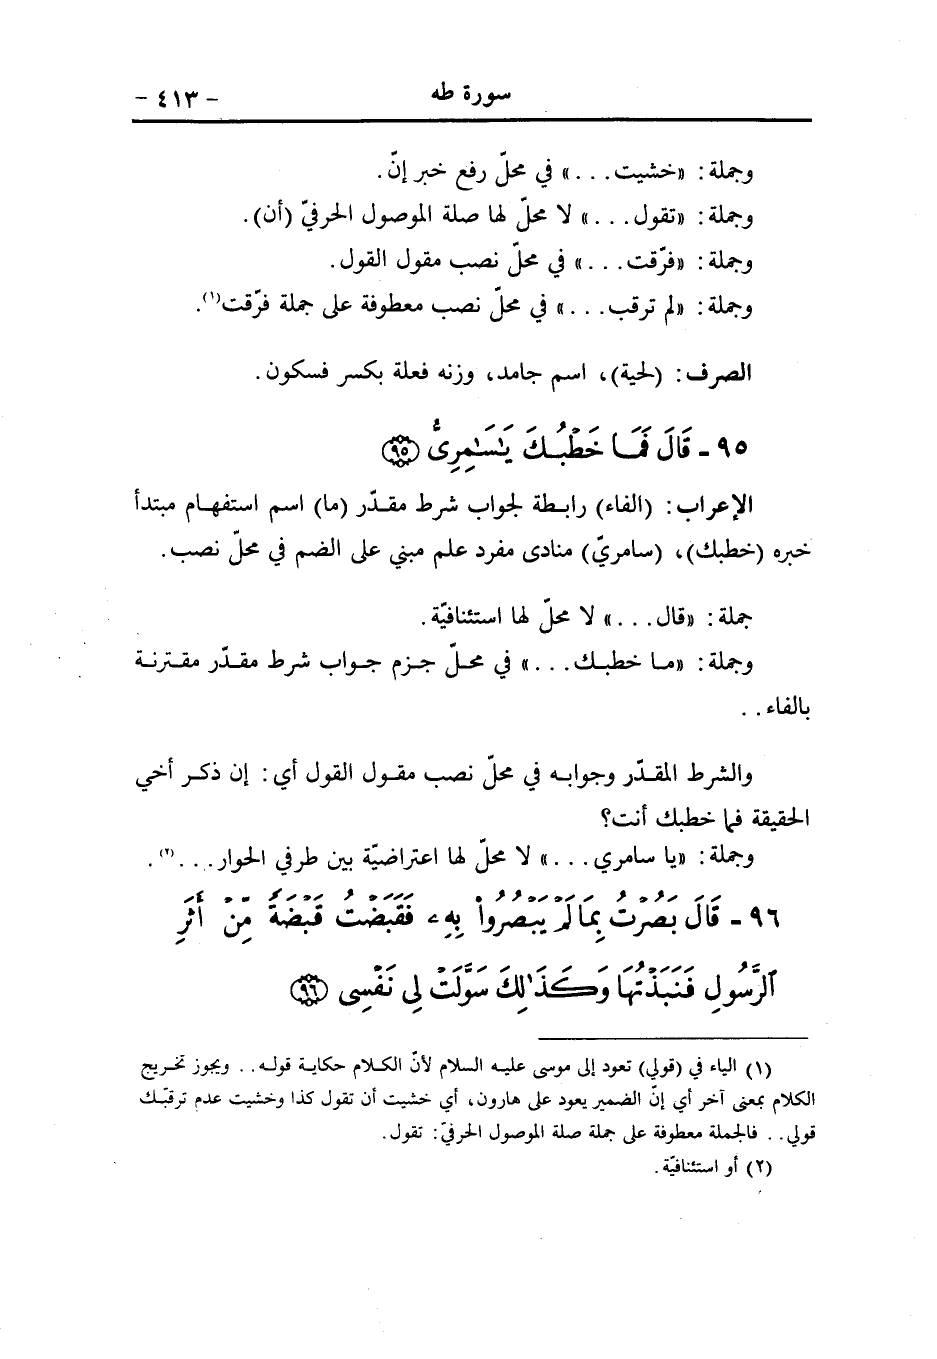 سورة طه
- ٤١٣ -
وجملة: «خشيت...» في محلّ رفع خبر إنّ.
وجملة: «تقول...» لا محلّ لها صلة الموصول الحرفيّ (أن).
وجملة: «فرّقت...» في محلّ نصب مقول القول.
وجملة: «لم ترقب...» في محلّ نصب معطوفة على جملة فرّقت(١).
الصرف: (لحية)، اسم جامد، وزنه فعلة بكسر فسكون.
٩٥ - قَالَ فَمَا خَطْبُكَ يَـٰسَـٰمِرِىُّ ﴿٩٥﴾
الإعراب: (الفاء) رابطة لجواب شرط مقدّر (ما) اسم استفهام مبتدأ
خبره (خطبك)، (سامريّ) منادى مفرد علم مبني على الضم في محلّ نصب.
جملة: «قال...» لا محلّ لها استئنافيّة.
وجملة: «ما خطبك...» في محلّ جزم جواب شرط مقدّر مقترنة
بالفاء..
والشرط المقدّر وجوابه في محلّ نصب مقول القول أي: إن ذكر أخي
الحقيقة فما خطبك أنت؟
وجملة: «يا سامري...» لا محلّ لها اعتراضيّة بين طرفي الحوار...(٢).
٩٦ - قَالَ بَصُرْتُ بِمَا لَمْ يَبْصُرُواْ بِهِۦ فَقَبَضْتُ قَبْضَةً مِّنْ أَثَرِ
ٱلرَّسُولِ فَنَبَذْتُهَا وَكَذَٰلِكَ سَوَّلَتْ لِى نَفْسِى ﴿٩٦﴾
(١) الياء في (قولي) تعود إلى موسى عليه السلام لأنّ الكلام حكاية قوله.. ويجوز تخريج
الكلام بمعنى آخر أي إنّ الضمير يعود على هارون، أي خشيت أن تقول كذا وخشيت عدم ترقبّك
قولي.. فالجملة معطوفة على جملة صلة الموصول الحرفيّ: تقول.
(٢) أو استئنافيّة.